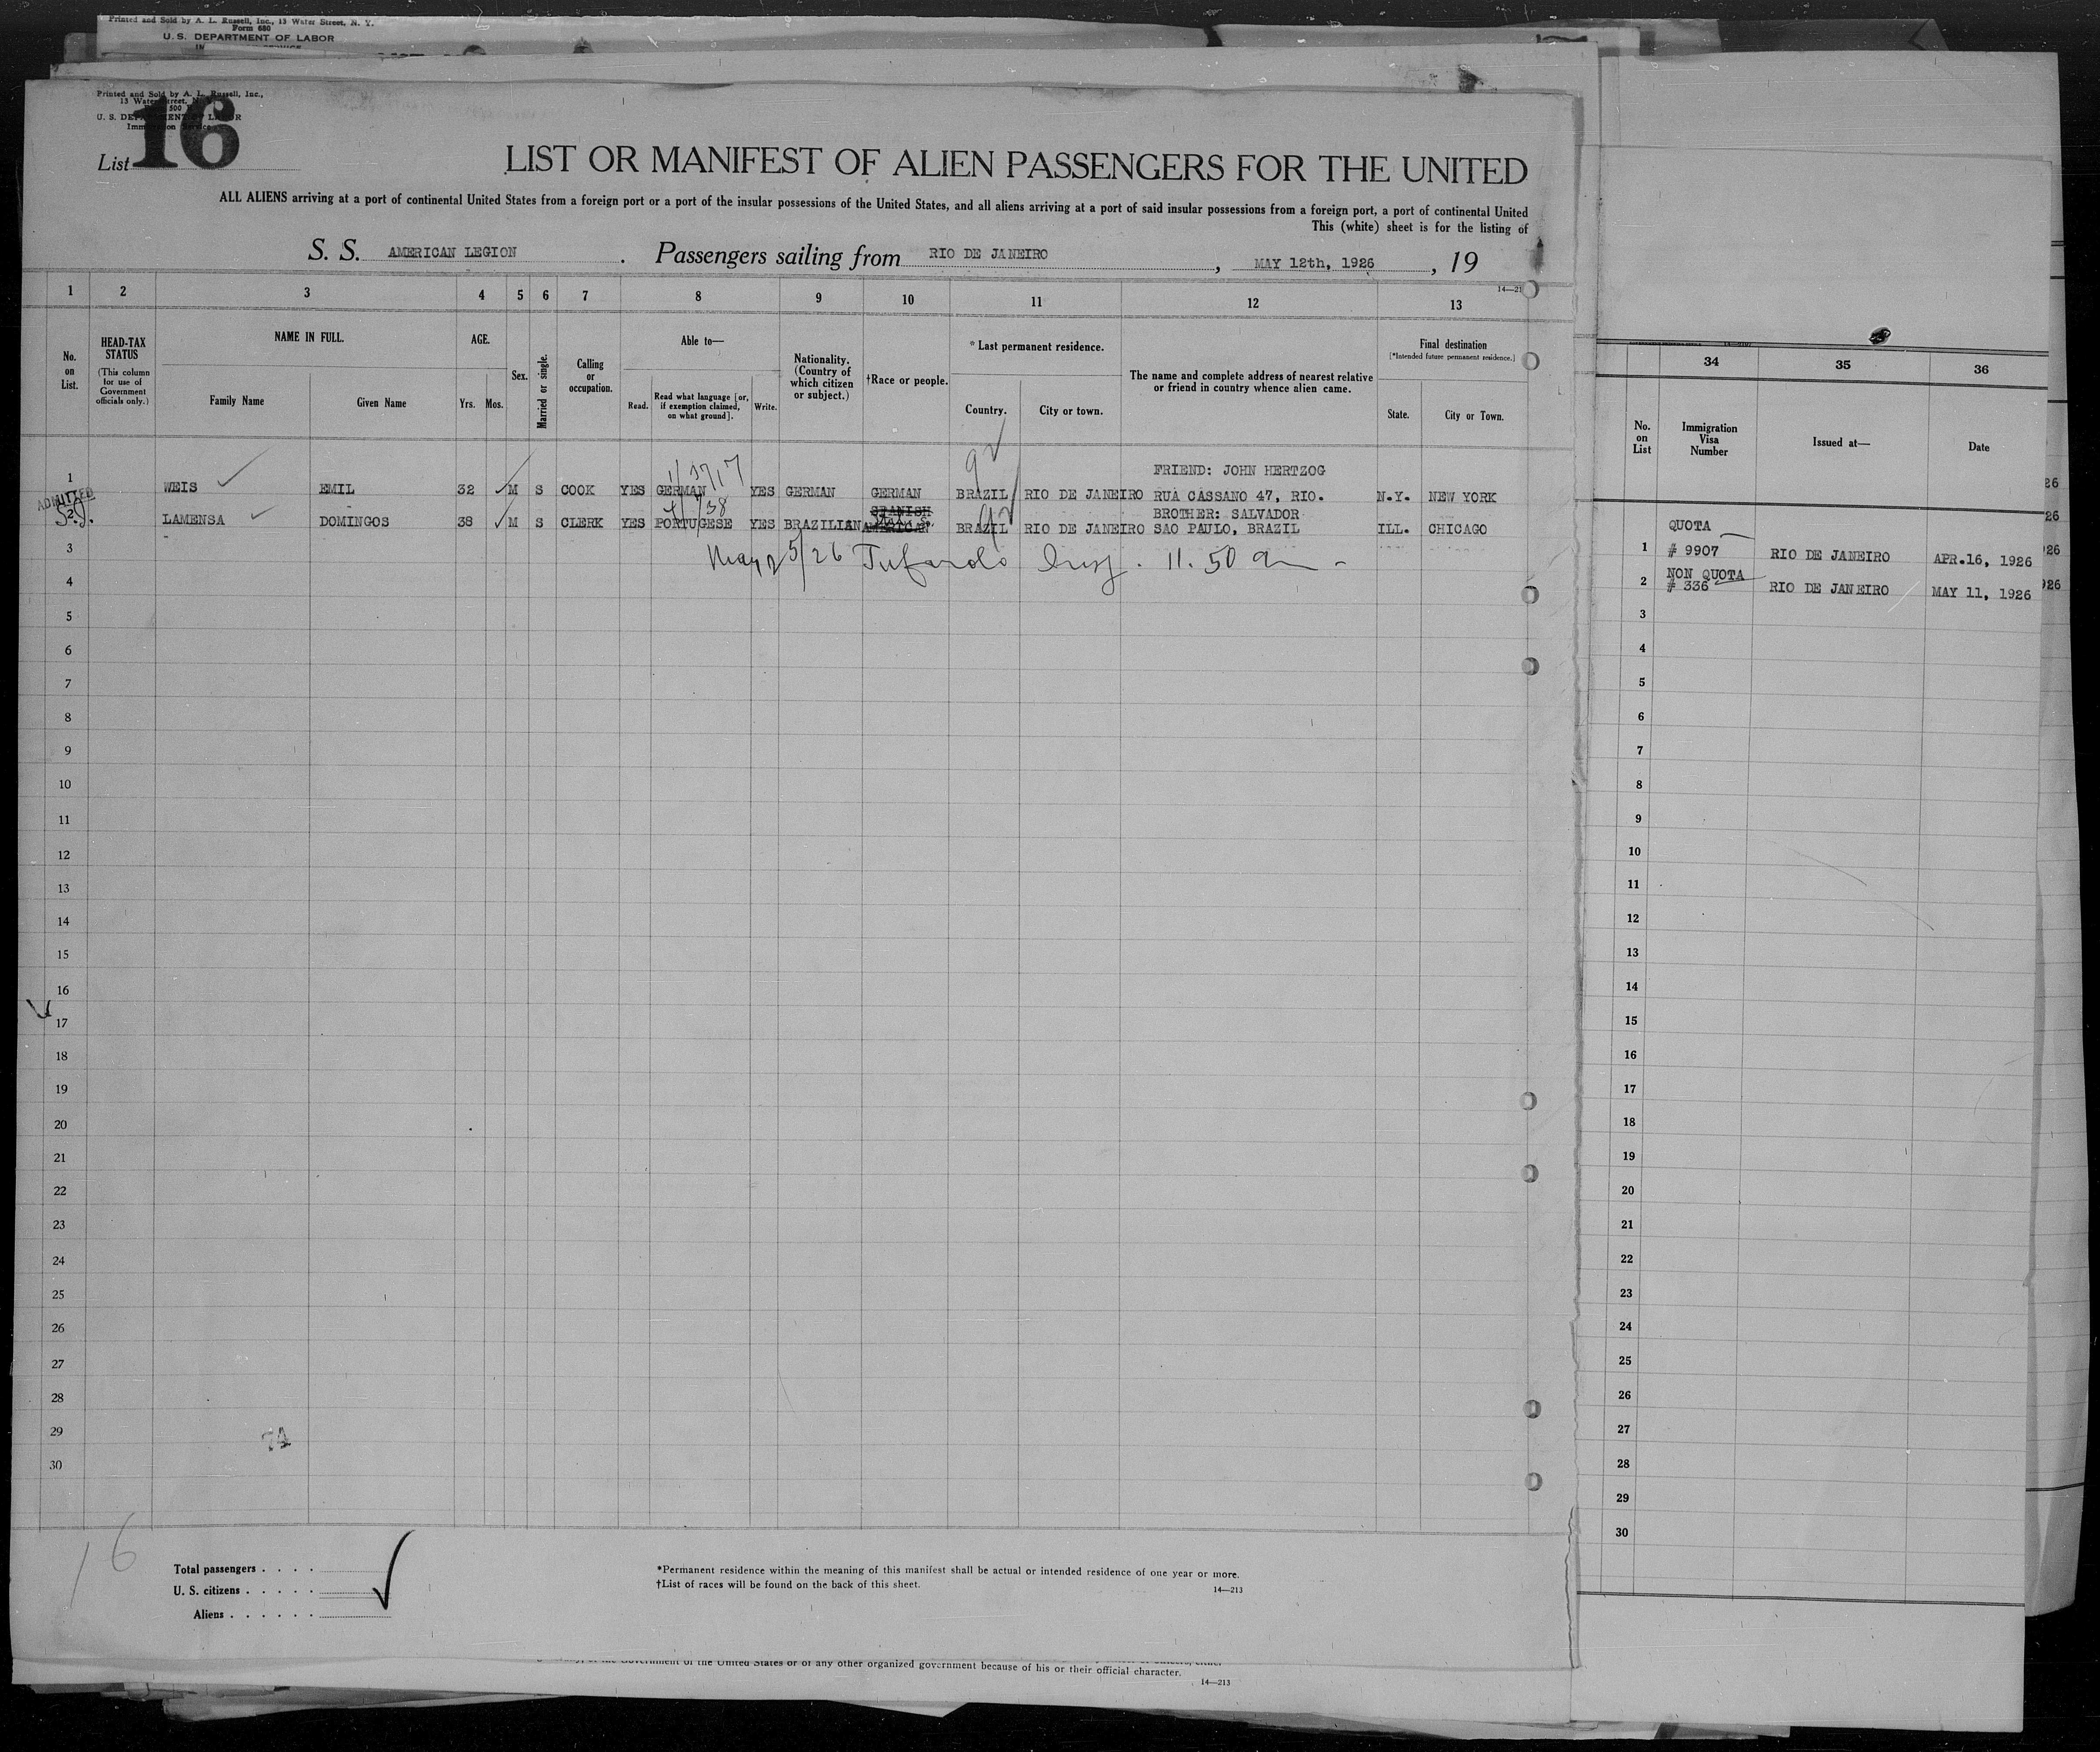 Printed and Sold by A. L. Russell, Inc., 13 Water Street, N. Y.
Form 680
U. S. DEPARTMENT OF LABOR
Printed and Sold by A. L. Russell, Inc.,
13 Water Street, N.
500
U. S. DEPARTMENT OF LABOR
Immigration Service
List 16
LIST OR MANIFEST OF ALIEN PASSENGERS FOR THE UNITED
ALL ALIENS arriving at a port of continental United States from a foreign port or a port of the insular possessions of the United States, and all aliens arriving at a port of said insular possessions from a foreign port, a port of continental United
This (white) sheet is for the listing of
S. S. AMERICAN LEGION . Passengers sailing from RIO DE JANEIRO , MAY 12th, 1926 , 19
1 2 3 4 5 6 7 8 9 10 11 12 13
14—21
No. on List.
HEAD-TAX STATUS (This column for use of Government officials only.)
NAME IN FULL.
Family Name Given Name
AGE.
Yrs. Mos.
Sex.
Married or single.
Calling or occupation.
Able to—
Read. Read what language [or, if exemption claimed, on what ground]. Write.
Nationality. (Country of which citizen or subject.)
†Race or people.
* Last permanent residence.
Country. City or town.
The name and complete address of nearest relative or friend in country whence alien came.
Final destination
[*Intended future permanent residence.]
State. City or Town.
FRIEND: JOHN HERTZOG
1 WEIS EMIL 32 M S COOK YES GERMAN YES GERMAN GERMAN BRAZIL RIO DE JANEIRO RUA CASSANO 47, RIO. N.Y. NEW YORK
ADMITTED
SPANISH BROTHER: SALVADOR
2 LAMENSA DOMINGOS 38 M S CLERK YES PORTUGESE YES BRAZILIAN AMERICAN BRAZIL RIO DE JANEIRO SAO PAULO, BRAZIL ILL. CHICAGO
May 25/26 Insp. 11.50 am
3
4
5
6
7
8
9
10
11
12
13
14
15
16
17
18
19
20
21
22
23
24
25
26
27
28
29
30
16
Total passengers . . . .
U. S. citizens . . . . .
Aliens . . . . . .
*Permanent residence within the meaning of this manifest shall be actual or intended residence of one year or more.
†List of races will be found on the back of this sheet.
14—213
Government of the United States or of any other organized government because of his or their official character.
14—213
34 35 36
No. on List
Immigration Visa Number
Issued at—
Date
QUOTA
1 # 9907 RIO DE JANEIRO APR.16, 1926
NON QUOTA
2 # 336 RIO DE JANEIRO MAY 11, 1926
3
4
5
6
7
8
9
10
11
12
13
14
15
16
17
18
19
20
21
22
23
24
25
26
27
28
29
30
26
26
926
926